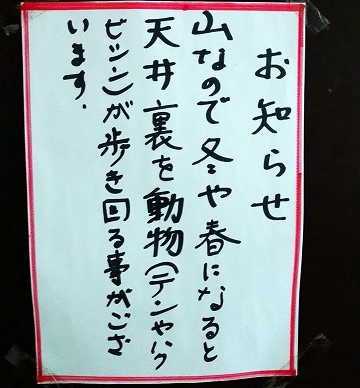 お知らせ
山なので冬や春になると
天井裏を動物(テンやハク
ビシン)が歩き回る事がござ
います.